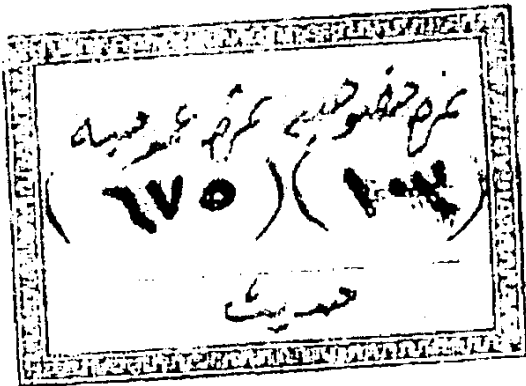 نمرة خصوصية نمرة عمومية
(١٠٧) (٦٧٥)
حديث